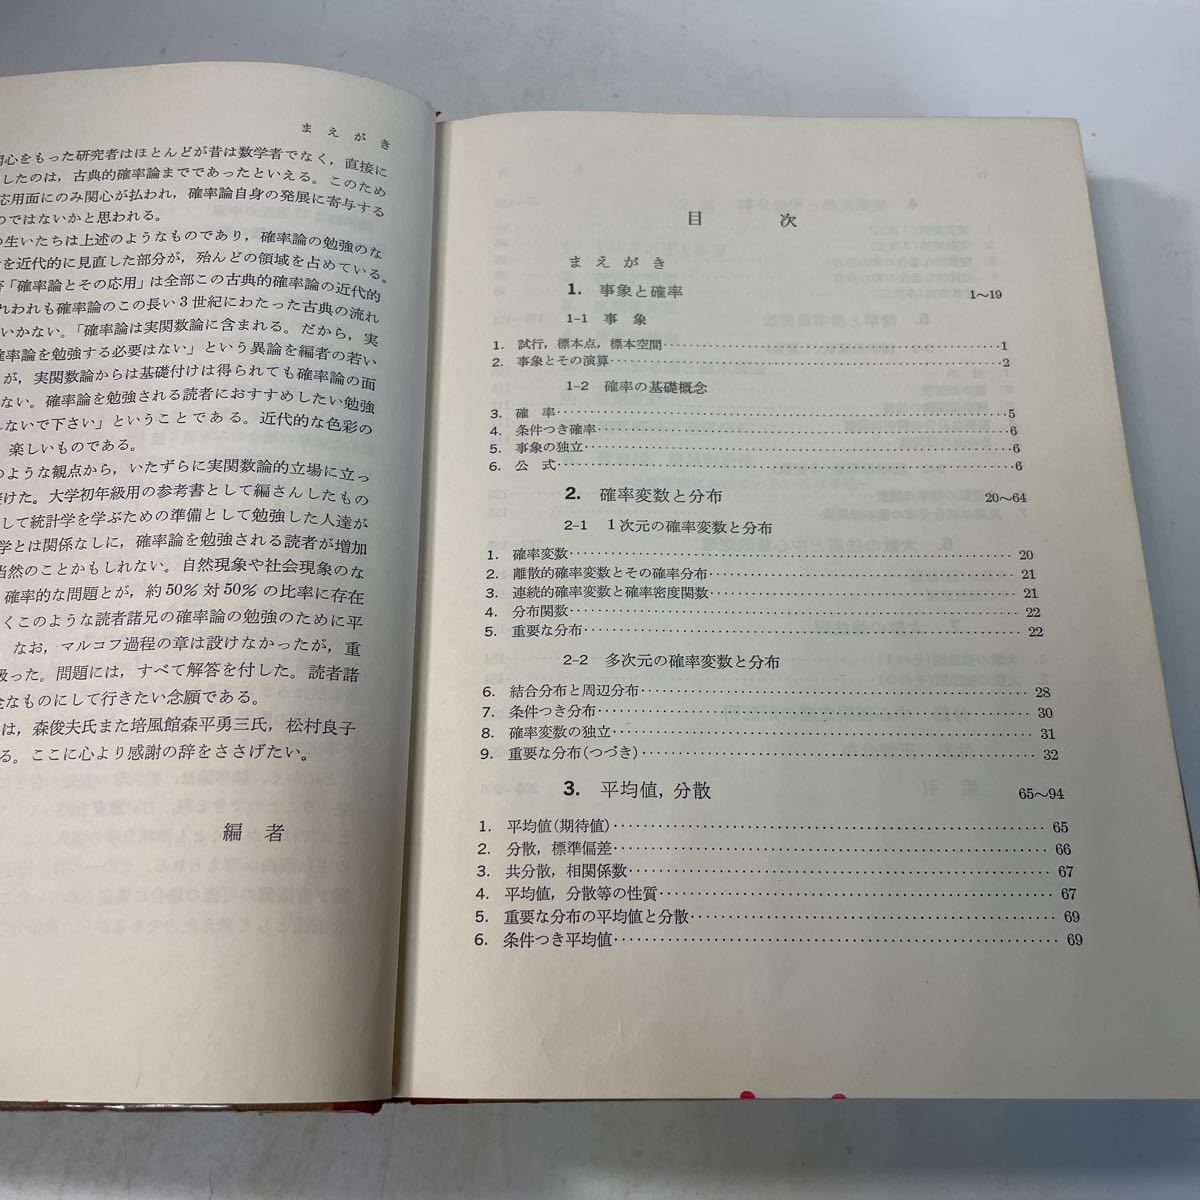 まえがき
関心をもった研究者はほとんどが昔は数学者でなく，直接に
したのは，古典的確率論までであったといえる。このため
応用面にのみ関心が払われ，確率論自身の発展に寄与する
のではないかと思われる。
の生いたちは上述のようなものであり，確率論の勉強のな
を近代的に見直した部分が，殆んどの領域を占めている。
「確率論とその応用」は全部この古典的確率論の近代的
れわれも確率論のこの長い３世紀にわたった古典の流れ
いかない。「確率論は実関数論に含まれる。だから，実
確率論を勉強する必要はない」という異論を編者の若い
が，実関数論からは基礎付けは得られても確率論の面
ない。確率論を勉強される読者におすすめしたい勉強
ないで下さい」ということである。近代的な色彩の
楽しいものである。
のような観点から，いたずらに実関数論的立場に立っ
けた。大学初年級用の参考書として編さんしたもの
して統計学を学ぶための準備として勉強した人達が
学とは関係なしに，確率論を勉強される読者が増加
当然のことかもしれない。自然現象や社会現象のな
確率的な問題とが，約50％対50％の比率に存在
くこのような読者諸兄の確率論の勉強のために平
なお，マルコフ過程の章は設けなかったが，重
扱った。問題には，すべて解答を付した。読者諸
全なものにして行きたい念願である。
は，森俊夫氏また培風館森平勇三氏，松村良子
る。ここに心より感謝の辞をささげたい。
編者
目次
まえがき
1. 事象と確率 1〜19
1-1 事象
1. 試行，標本点，標本空間 1
2. 事象とその演算 2
1-2 確率の基礎概念
3. 確率 5
4. 条件つき確率 6
5. 事象の独立 6
6. 公式 6
2. 確率変数と分布 20〜64
2-1 １次元の確率変数と分布
1. 確率変数 20
2. 離散的確率変数とその確率分布 21
3. 連続的確率変数と確率密度関数 21
4. 分布関数 22
5. 重要な分布 22
2-2 多次元の確率変数と分布
6. 結合分布と周辺分布 28
7. 条件つき分布 30
8. 確率変数の独立 31
9. 重要な分布(つづき) 32
3. 平均値，分散 65〜94
1. 平均値(期待値) 65
2. 分散，標準偏差 66
3. 共分散，相関係数 67
4. 平均値，分散等の性質 67
5. 重要な分布の平均値と分散 69
6. 条件つき平均値 69